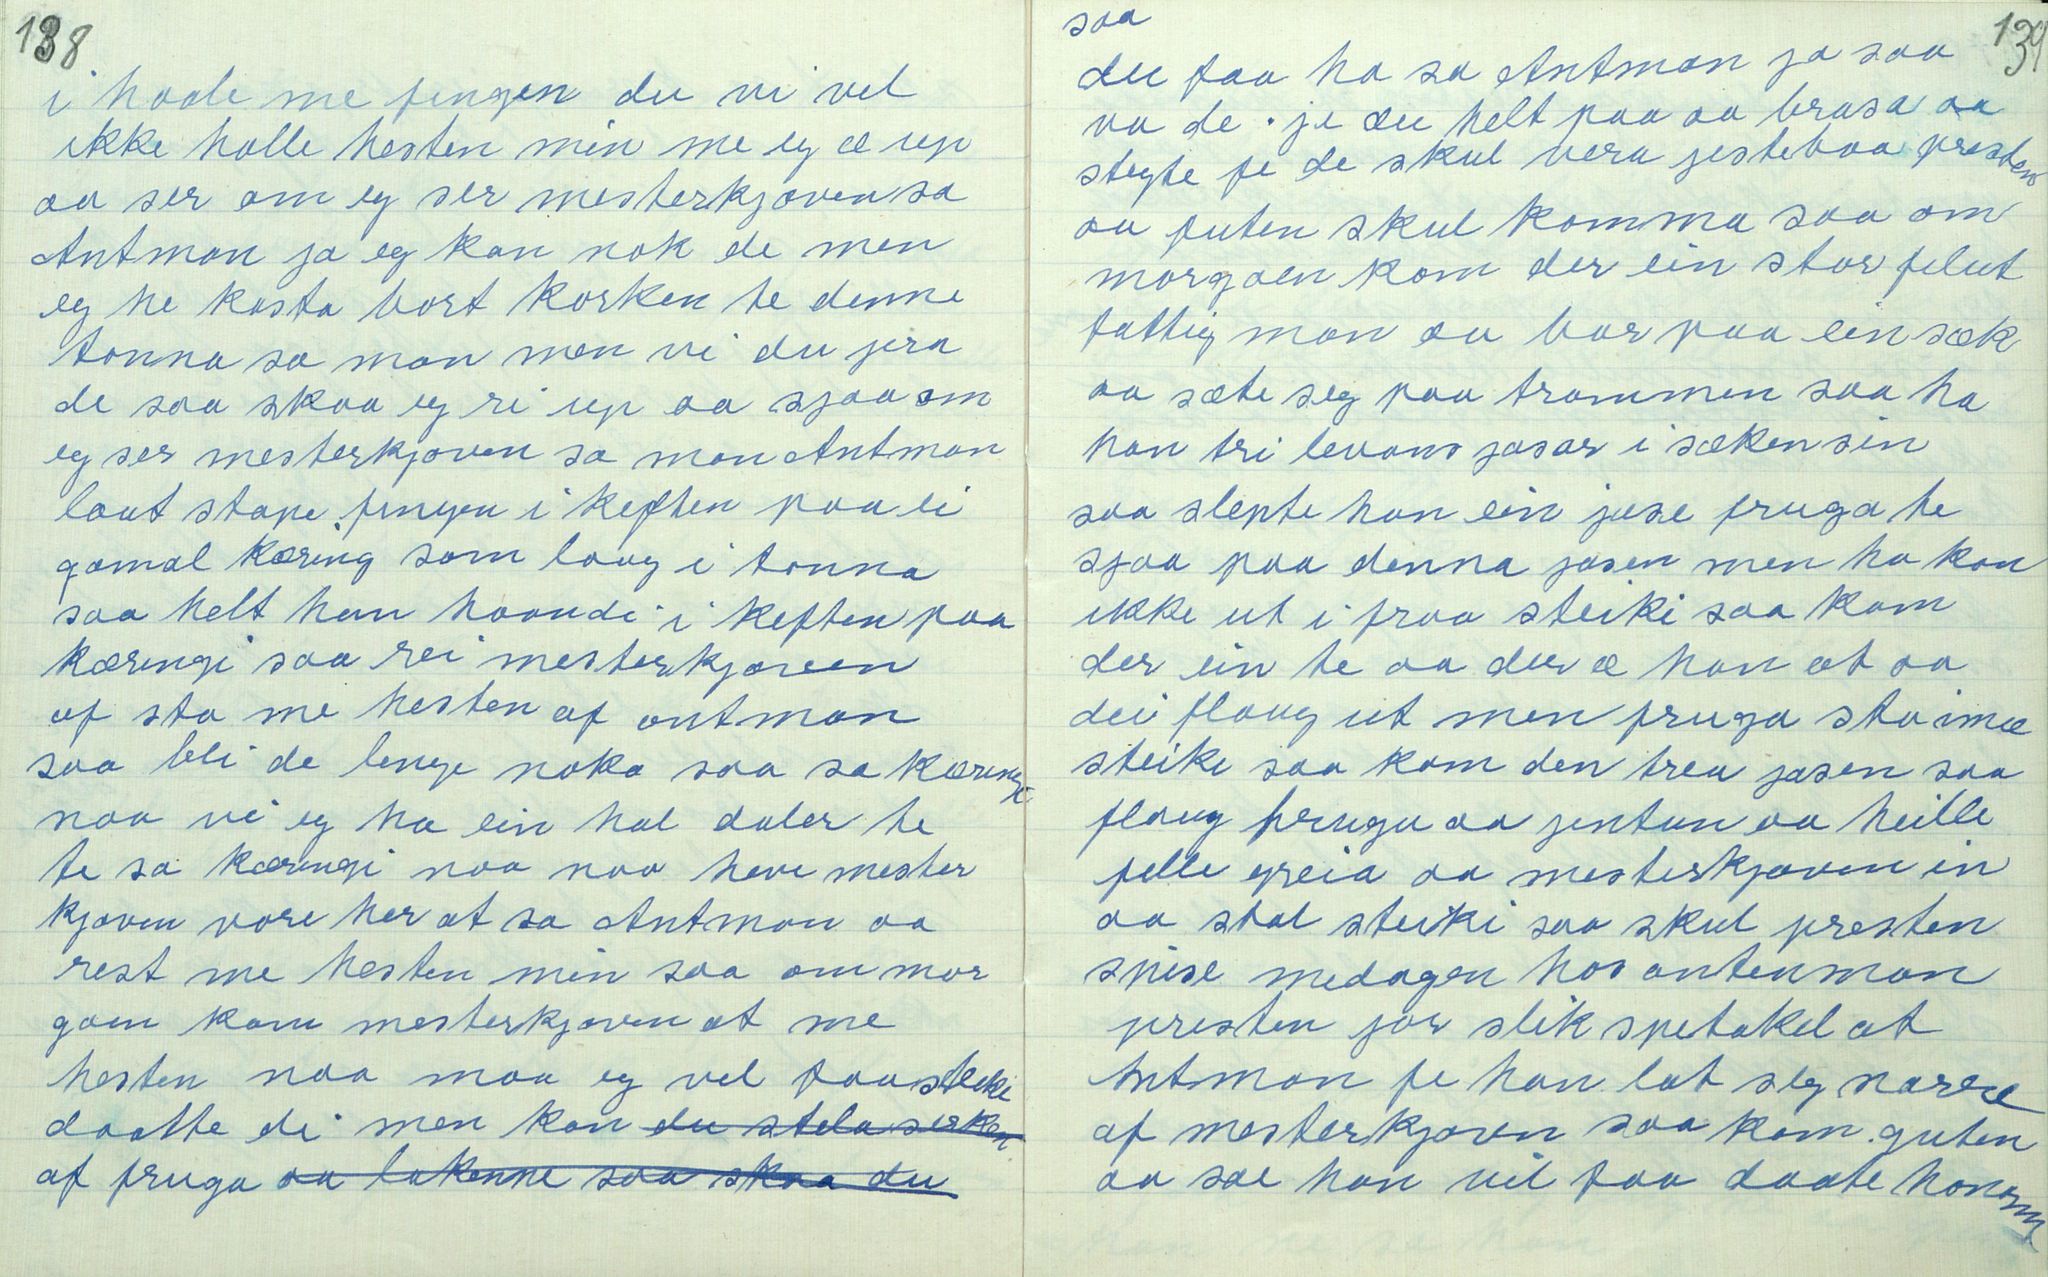 138
i haale me fingen du vi vel
ikke halle hesten min me eg æ up
aa ser om eg ser mesterkjoven sa
Antman ja eg kan nok de men
eg he kasta bort korken te denne
tonna sa man men vi du jera
de saa skaa eg ri up aa sjaa om
eg ser mesterkjoven sa man Antman
laut stape fingen i keften paa ei
gamal kæring som laag i tonna
saa helt han haandi i keften paa
kæringi saa rei mesterkjoven
af sta me hesten af antman
saa bli de lenge noko saa sa kæringi
naa vi eg ha ein hal daler te
te sa kæringi naa naa heve mester
kjoven vore her at sa Antman aa
rest me hesten min saa om mor
gaen kom mesterkjoven at me
hesten naa maa eg vel faa steiki
daatte di men kan du stela serken
af fruga aa lakenne saa skaa du
139
saa
du faa ha sa Antman ja saa
va de. je du helt paa aa brasa aa
stegte fe de skul vera jestebaa presten
aa futen skul komma saa om
morgaen kom der ein stor felut
fattig man aa bar paa ein sæk
aa sæte seg paa trammen saa ha
han tri levans jasar i sæken sin
saa slepte han ein jase fruga te
sjaa paa denna jasen men ho kan
ikke ut i fraa steiki saa kam
der ein te aa der æ han at aa
dei flaug ut men fruga sto imæ
steike saa kam den trea jasen saa
flaug fruga aa jentun aa heille
felle greia aa mesterkjoven in
aa stal steiki saa skul presten
spise medagen hos antenman
presten jor slik spetakel at
Antman fe han lat seg narre
af mesterkjoven saa kom guten
aa sae han vil faa daate honom